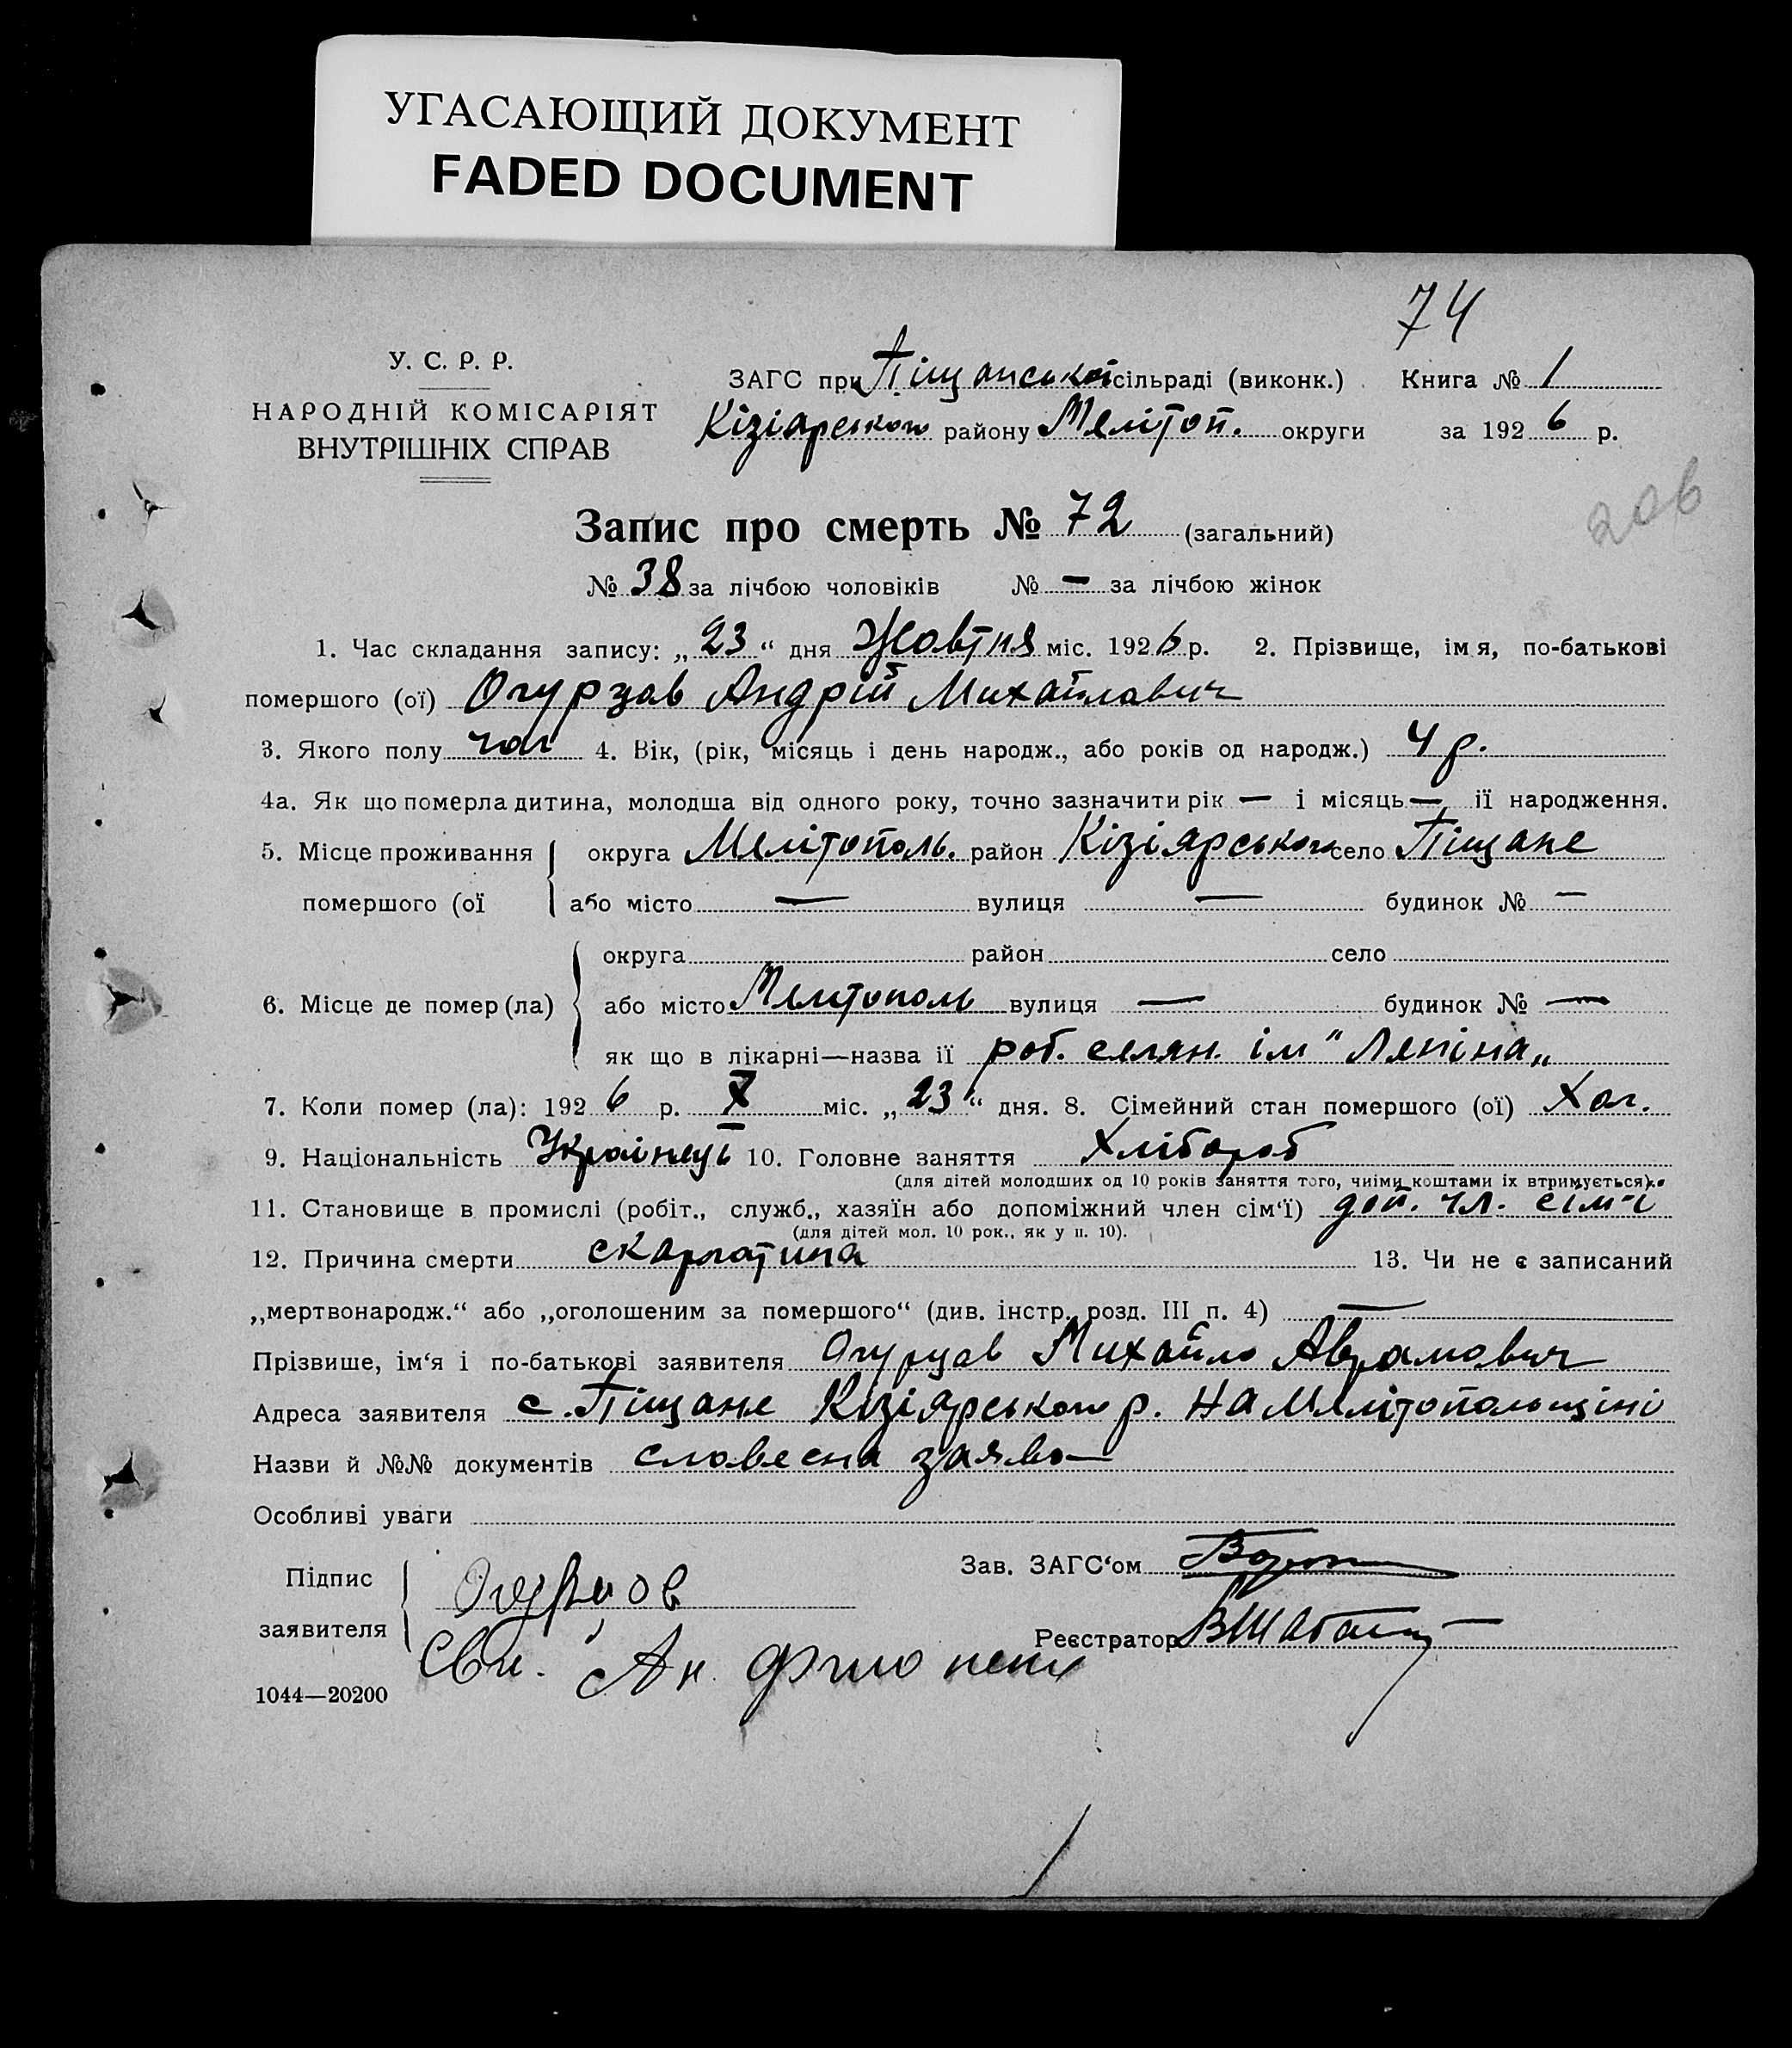 УГАСАЮЩИЙ ДОКУМЕНТ
FADED DOCUMENT
74
У. С. Р. Р.
НАРОДНІЙ КОМІСАРІЯТ
ВНУТРІШНІХ СПРАВ
ЗАГС при Піщанській сільраді (виконк.) Книга № 1
Кізіярського району Меліtоп. округи за 1926 р.
206
Запис про смерть № 72 (загальний)
№ 38 за лічбою чоловіків № — за лічбою жінок
1. Час складання запису: „23“ дня Жовтня міс. 1926 р. 2. Прізвище, імя, по-батькові
помершого (ої) Огурзов Андрій Михайлович
3. Якого полу чол 4. Вік, (рік, місяць і день народж., або років од народж.) 4 р.
4а. Як що померла дитина, молодша від одного року, точно зазначити рік — і місяць —, її народження.
5. Місце проживання помершого (ої округа Мелітополь. район Кізіярського село Піщане
або місто — вулиця — будинок № —
округа район село
6. Місце де помер (ла) або місто Мелітополь вулиця — будинок № —
як що в лікарні—назва її роб. селян. ім "Леніна„
7. Коли помер (ла): 1926 р. X міс. „23“ дня. 8. Сімейний стан помершого (ої) Хол.
9. Національність Українець 10. Головне заняття Хлібороб
(для дітей молодших од 10 років заняття того, чиїми коштами їх втримується).
11. Становище в промислі (робіт., служб., хазяїн або допоміжний член сім‘ї) доп. чл. сім-ї
(для дітей мол. 10 рок., як у п. 10).
12. Причина смерти скарлатина 13. Чи не є записаний
„мертвонародж.“ або „оголошеним за помершого“ (див. інстр. розд. III п. 4) —
Прізвише, ім‘я і по-батькові заявителя Огурцов Михайло Аврамович
Адреса заявителя с. Піщане Кізіярського р. на Мелітопольщіні
Назви й №№ документів словесна заява
Особливі уваги
Підпис заявителя Огурцов
Зав. ЗАГС‘ом
Реєстратор
Ан.
1044—20200